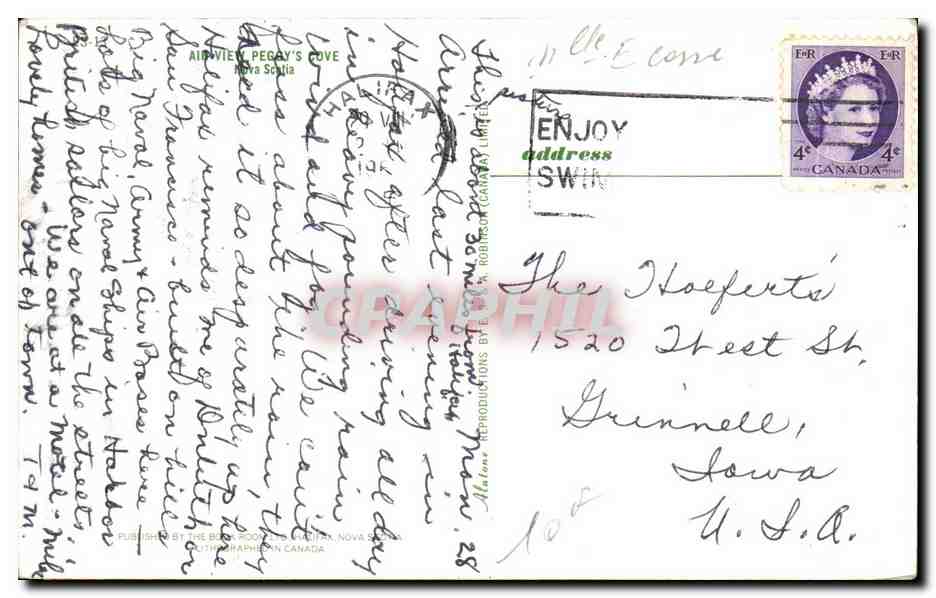 AIR VIEW, PEGGY'S COVE
Nova Scotia
HALIFAX
VIII
ENJOY
SWIM
address
EIIR EIIR
4¢ 4¢
CANADA
CPAPHIL
This is about 30 miles from Halifax Mon. 28
picture
Arrived last evening in
Halifax after driving all day
in heavy pounding rain
wind and fog. We can't
fuss about the rain, they
need it so desparately up here
Halifax reminds me of Duluth or
San Francisco - built on hills
Big Naval, Army & Air Bases here —
Lots of big Naval Ships in Harbor
British sailors on all the streets
Lovely homes - We are at a Motel - mile
out of town. T & M.
The Hoeferts
1520 West St.
Grinnell,
Iowa
U.S.A.
Alatone REPRODUCTIONS BY E. W. A. ROBINSON (CANADA) LIMITED
PUBLISHED BY THE BOOK ROOM LTD., HALIFAX, NOVA SCOTIA
LITHOGRAPHED IN CANADA